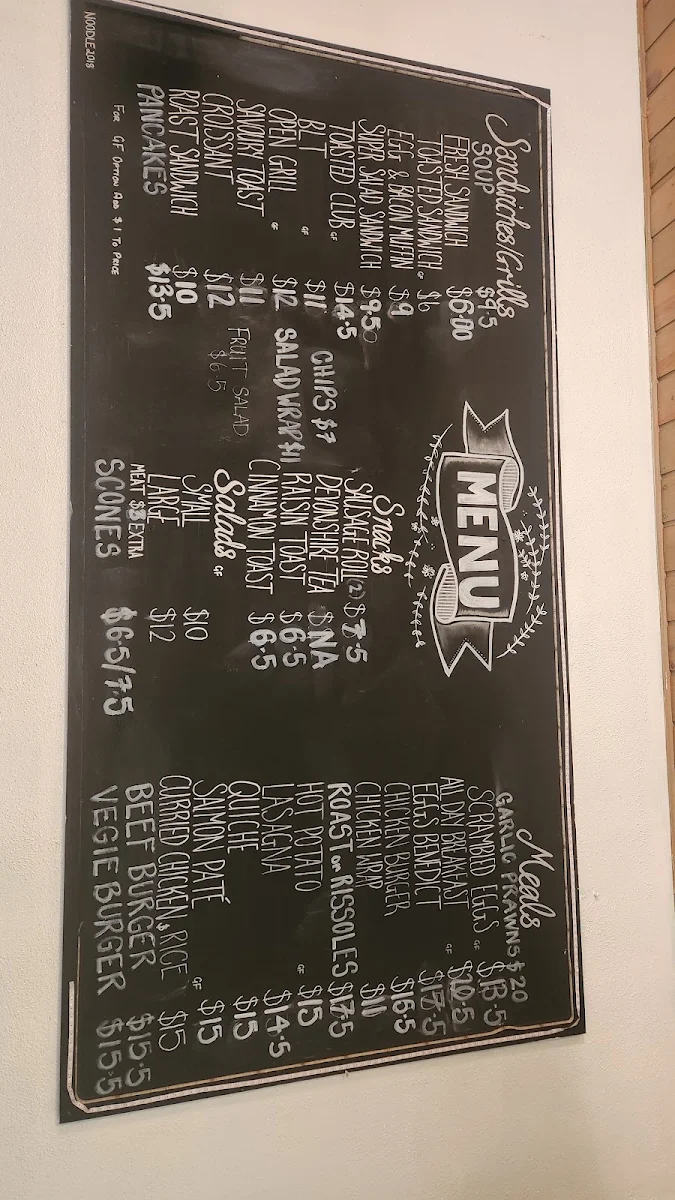 MENU
Sandwiches/Grills
SOUP $9.5
FRESH SANDWICH $6.00
TOASTED SANDWICH GF $6
EGG & BACON MUFFIN $9
SUPER SALAD SANDWICH $9.50
TOASTED CLUB GF $14.5
BLT GF $11
OPEN GRILL $12
SAVOURY TOAST GF $11
CROISSANT $12
ROAST SANDWICH $10
PANCAKES $13.5
FOR GF OPTION ADD $1 TO PRICE
NOODLE2018
CHIPS $7
SALAD WRAP $11
FRUIT SALAD
$6.5
Snacks
SAUSAGE ROLL (2) $7.5
DEVONSHIRE TEA $NA
RAISIN TOAST $6.5
CINNAMON TOAST $6.5
Salads GF
SMALL $10
LARGE $12
MEAT $3 EXTRA
SCONES $6.5/7.5
Meals
GARLIC PRAWNS $20
SCRAMBLED EGGS GF $13.5
ALL DAY BREAKFAST GF
EGGS BENEDICT
CHICKEN BURGER $15.5
CHICKEN WRAP $11
ROAST OR RISSOLES $17.5
HOT POTATO GF $15
LASAGNA $14.5
QUICHE $15
SALMON PATÉ GF $15
CURRIED CHICKEN & RICE $15
BEEF BURGER $15.5
VEGIE BURGER $15.5